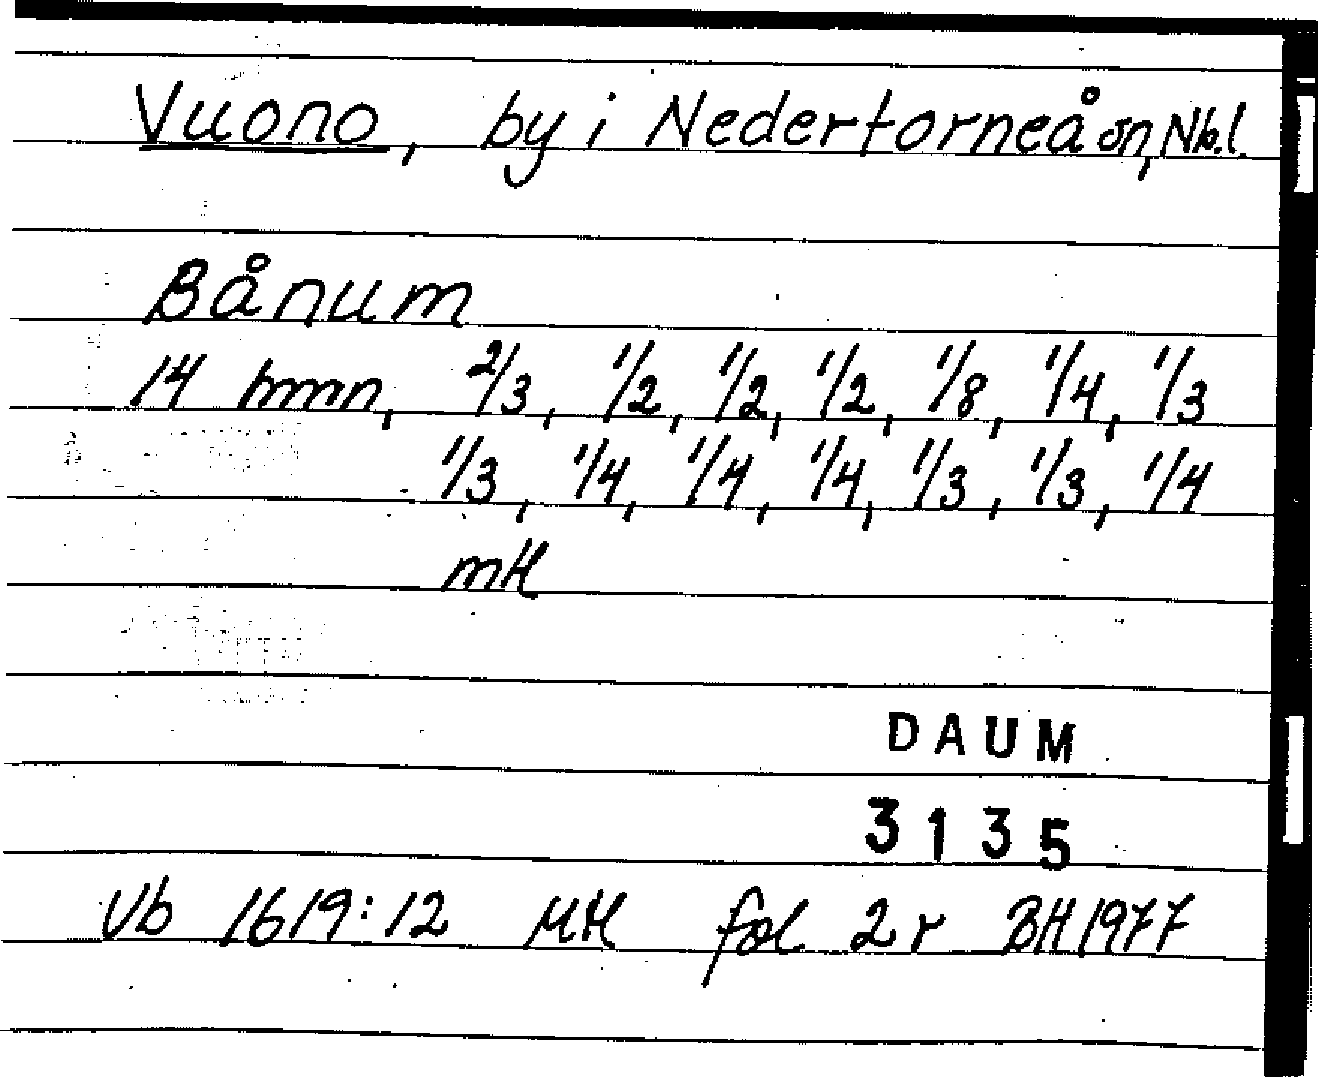 Vuono, by i Nedertorneå sn, Nb.l.
Bånum
14 hmn, 2/3, 1/2, 1/2, 1/2, 1/8, 1/4, 1/3
1/3, 1/4, 1/4, 1/4, 1/3, 1/3, 1/4
mtl
DAUM
3135
Vb 1619:12 Mtl fol 2r BH 1977